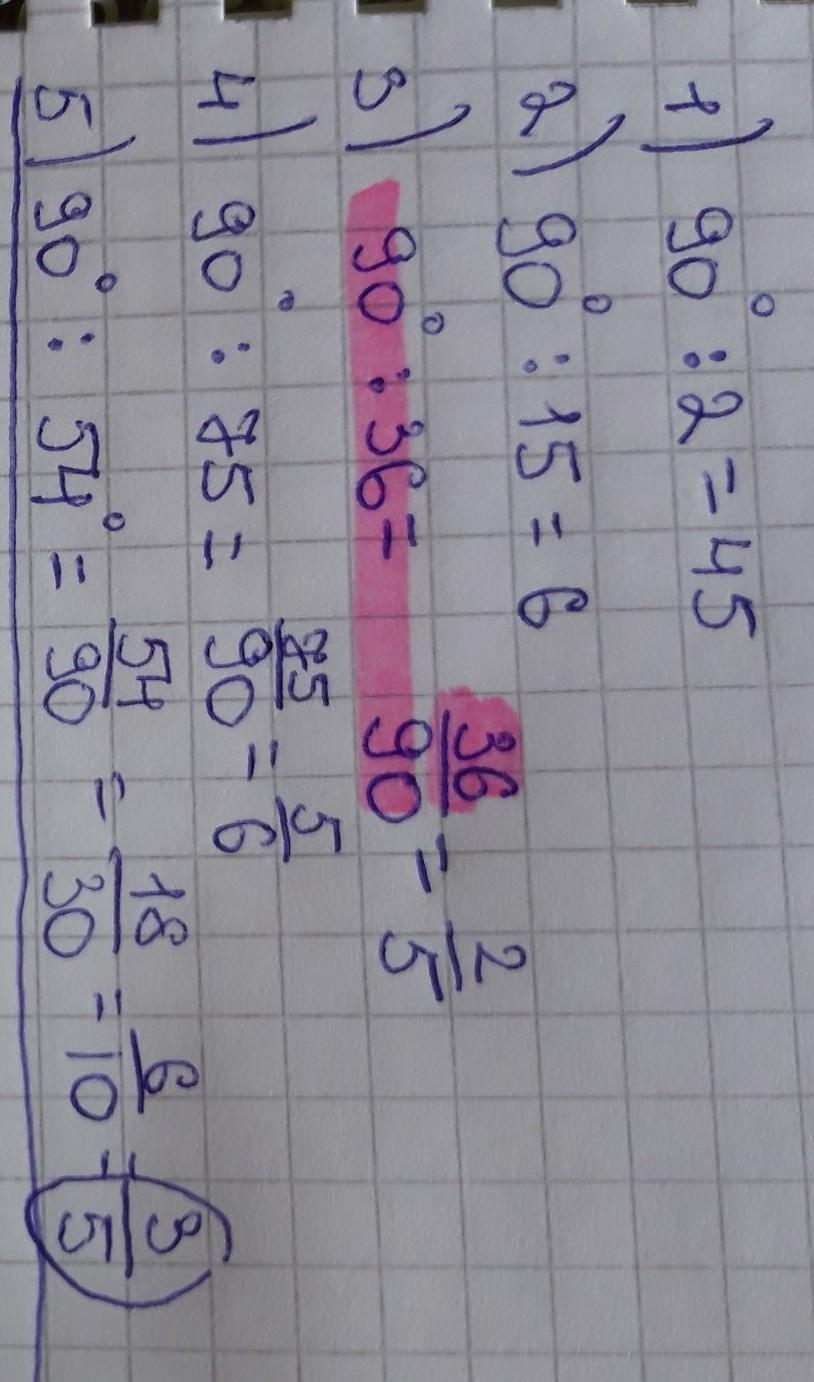 1) 90° : 2 = 45
2) 90° : 15 = 6
3) 90° : 36 = 36/90 = 2/5
4) 90° : 75 = 75/90 = 5/6
5) 90° : 54° = 54/90 = 18/30 = 6/10 = 3/5